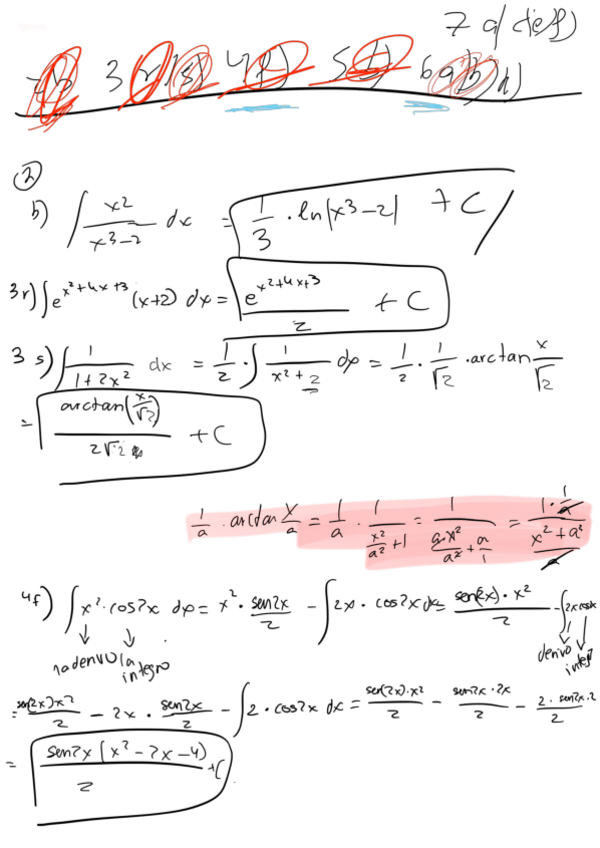 7 a) d) e) f)
3 r) s) 4 f) 5 6 a) b) d)
②
b) ∫ x²/(x³-2) dx = 1/3 · ln|x³-2| + C
3r) ∫ e^(x²+4x+3) (x+2) dx = e^(x²+4x+3)/2 + C
3 s) ∫ 1/(1+2x²) dx = 1/2 · ∫ 1/(x²+2) dx = 1/2 · 1/√2 · arctan x/√2
= arctan(x/√2)/(2√2) + C
1/a · arctan x/a = 1/a · 1/(x²/a²+1) = 1/(a·x²/a² + a/1) = (1·1/a)/((x²+a²)/a)
4f) ∫ x² · cos2x dx = x² · sen2x/2 - ∫ 2x · cos2x dx = sen(2x)·x²/2 - ∫ 2x cos2x
la derivo la integro derivo integro
= sen(2x)x²/2 - 2x · sen2x/2 - ∫ 2 · cos2x dx = sen(2x)·x²/2 - sen2x·2x/2 - 2·sen2x·2/2
= sen2x(x²-2x-4)/2 + C